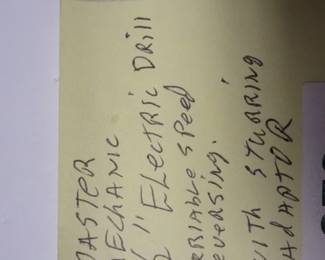 MASTER
MEChANIC
" ELECTRIC DRill
ARIABLE SPEED
EVERSING.
WITH STURRING
ADAPTOR